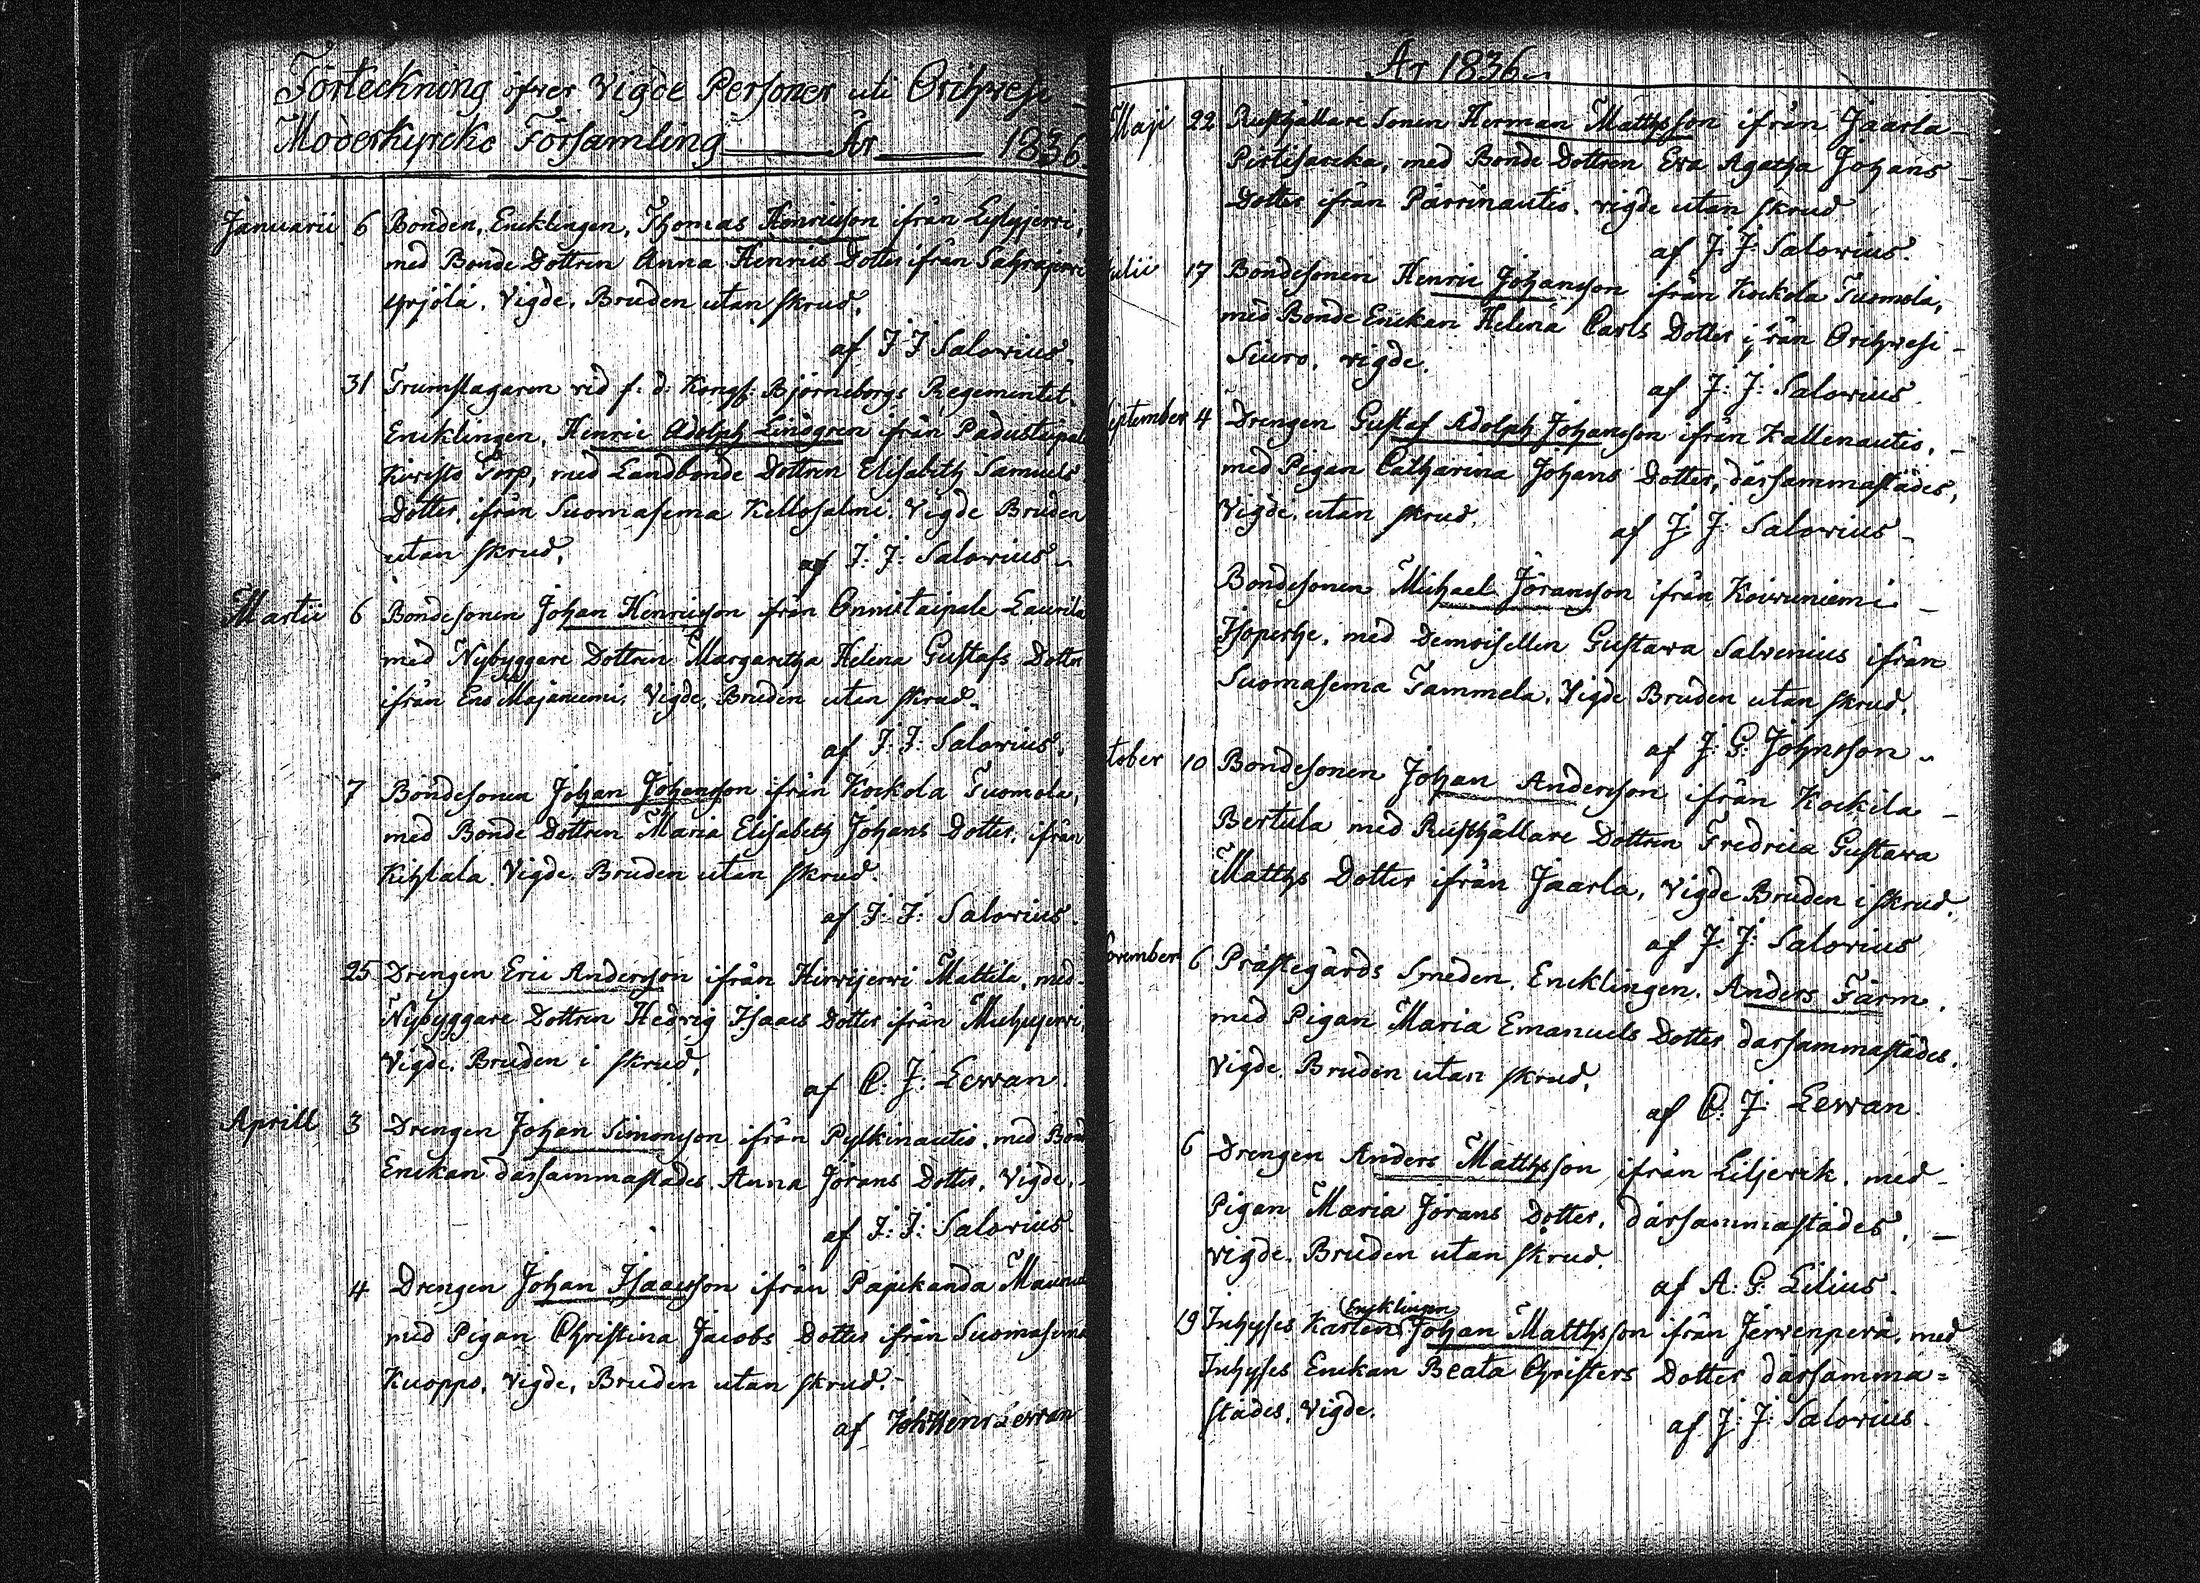 Förteckning öfver Vigde Personer uti Orihwesi
Moderkyrcko Församling År 1836.
Januarii 6 Bonden, Encklingen, Thomas Henricsson ifrån
med Bonde Dottren Anna Henrics Dotter ifrån
Yrjölä. Vigde. Bruden utan skrud.
af J J Salovius.
31 Trumslagaren vid f: d: Kongl: Björneborgs Regementet
Encklingen, Henric Adolph Lindgren ifrån
Torp, med Landbonde Dottren Elisabeth Samuels
Dotter, ifrån Suomasema Kellosalmi. Vigde Bruden
utan skrud.
af J: J: Salovius
Martii 6 Bondesonen Johan Henricsson ifrån Onnistaipale Laurila
med Nybyggare Dottren Margaretha Helena Gustafs Dotter
ifrån Eno Majaniemi, Vigde, Bruden utan skrud.
af J: J: Salovius.
7 Bondesonen Johan Johansson ifrån Kockola Tuomola,
med Bonde Dottren Maria Elisabeth Johans Dotter, ifrån
Kihlala. Vigde. Bruden utan skrud.
af J: J: Salovius.
25 Drengen Eric Andersson ifrån Hirvijervi Mattila, med
Nybyggare Dottren Hedvig Isaacs Dotter ifrån
Vigde. Bruden i skrud.
af C: J: Levvan.
Aprill 3 Drengen Johan Simonsson ifrån Pylkinautio, med Bonde
Enckan därsammastädes, Anna Jörans Dotter. Vigde.
af J: J: Salovius.
4 Drengen Johan Isaacsson ifrån Pajukanda
med Pigan Christina Jacobs Dotter ifrån Suomasema
Kuoppo. Vigde, Bruden utan skrud.
af Levvan
År 1836.
Maji 22 Rusthållare Sonen Herman Matthsson ifrån Jaarla
Pirtisaecka, med Bonde Dottren Eva Agatha Johans
Dotter ifrån Pärrinautio. vigde utan skrud
af J: J: Salovius.
Julii 17 Bondesonen Henric Johansson ifrån Kockola Tuomola,
med Bonde Enckan Helena Carls Dotter ifrån Orihwesi
Siuro. vigde.
af J: J: Salovius.
September 4 Drengen Gustaf Adolph Johansson ifrån Kallenautio,
med Pigan Catharina Johans Dotter, därsammastädes,
Vigde, utan skrud.
af J: J: Salovius
Bondesonen Michael Jöransson ifrån Koivuniemi
Isoperhe, med Demoisellen Gustava Salvenius ifrån
Suomasema Tammela. Vigde Bruden utan skrud.
af J: G: Johnsson
tober 10 Bondesonen Johan Andersson ifrån Kockila
Bertula med Rusthållare Dottren Fredrica Gustava
Matths Dotter ifrån Jaarla, Vigde Bruden i skrud.
af J: J: Salovius
ovember 6 Prästegårds Smeden, Encklingen, Anders Färm,
med Pigan Maria Emanuels Dotter därsammastädes.
Vigde. Bruden utan skrud.
af C: J: Levvan.
6 Drengen Anders Matthsson ifrån Liljevik, med
Pigan Maria Jörans Dotter, därsammastädes.
vigde. Bruden utan skrud.
af A: G: Lilius.
Encklingen
19 Inhyses Karlen Johan Matthsson ifrån Jervenperä, med
Inhyses Enckan Beata Christers Dotter därsamma=
städes. Vigde.
af J: J: Salovius.